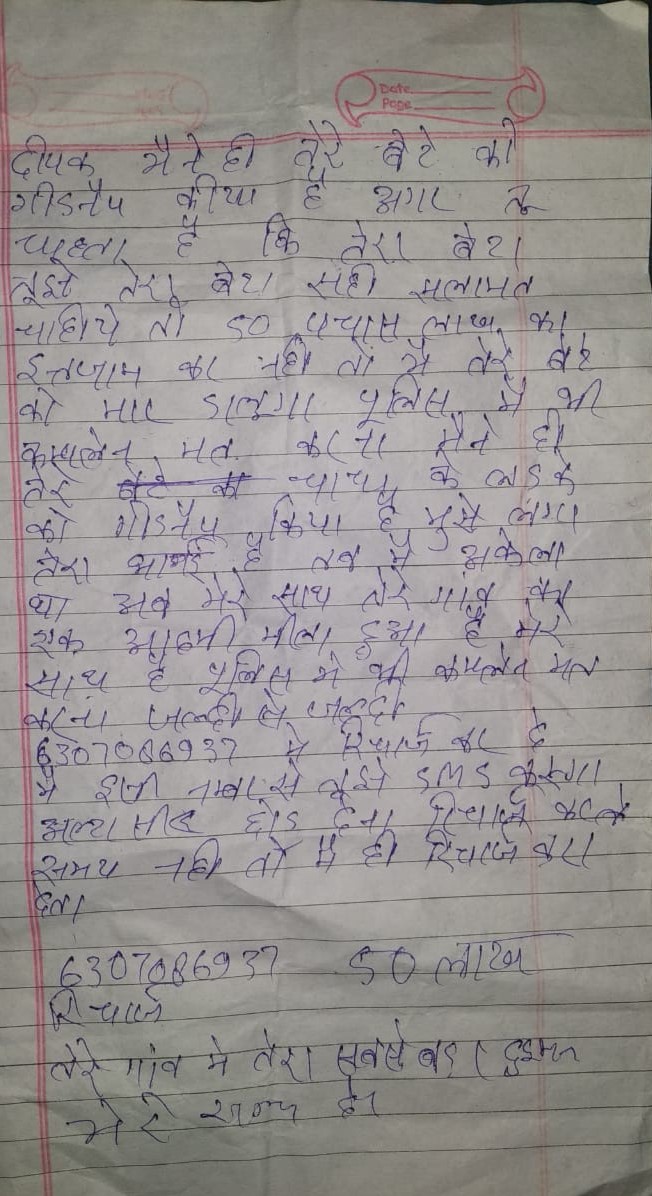 Date
Page
दीपक मैने ही तेरे बेटे को
गीडनैप कीया है अगर तू
चाहता है कि तेरा बेटा
तूझे तेरा बेटा सही सलामत
चाहिये तो 50 पचास लाख का
इन्तजाम कर नही तो मै तेरे बेटे
को मार डालूगा पुलिस मे भी
कम्पलेन मत करना मैने ही
तेरे बेटे को चाचा के लडके
को गीडनैप किया है मुझे लगा
तेरा भाई है तब मै अकेला
था अब मेरे साथ तेरे गांव का
एक आदमी मीला हुआ है मेरे
साथ है पुलिस मे भी कमलेन मत
करना जल्दी से जल्दी
6307086937 मे रिचार्ज कर दे
मै इसी नम्बर से तूझे SMS करूगा
छोड देना रिचार्ज करके
समय नही तो मै ही रिचार्ज करा
देता
6307086937 50 लाख
रिचार्ज
तेरे गांव मे तेरा सबसे बडा दुश्मन
मेरे साथ है।